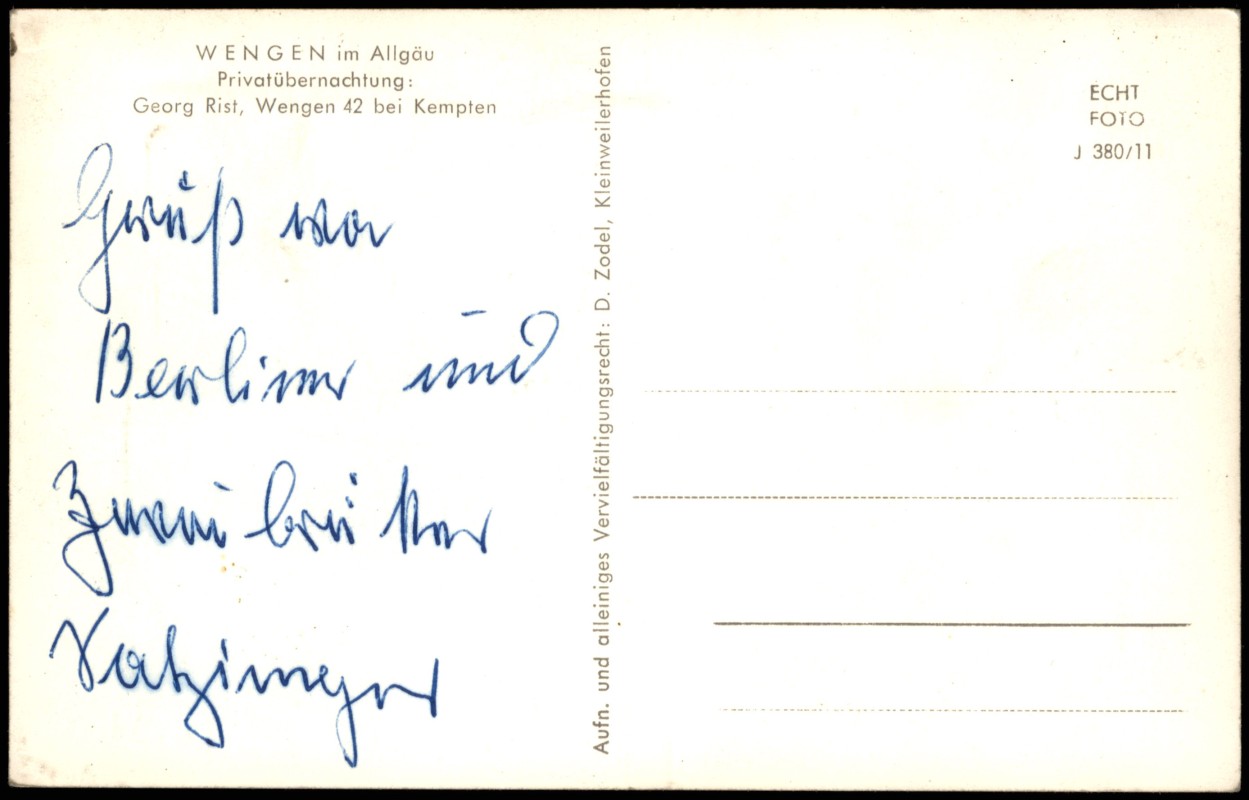 WENGEN im Allgäu
Privatübernachtung:
Georg Rist, Wengen 42 bei Kempten
Gruß
Berliner und
Aufn. und alleiniges Vervielfältigungsrecht: D. Zodel, Kleinweilerhofen
ECHT
FOTO
J 380/11